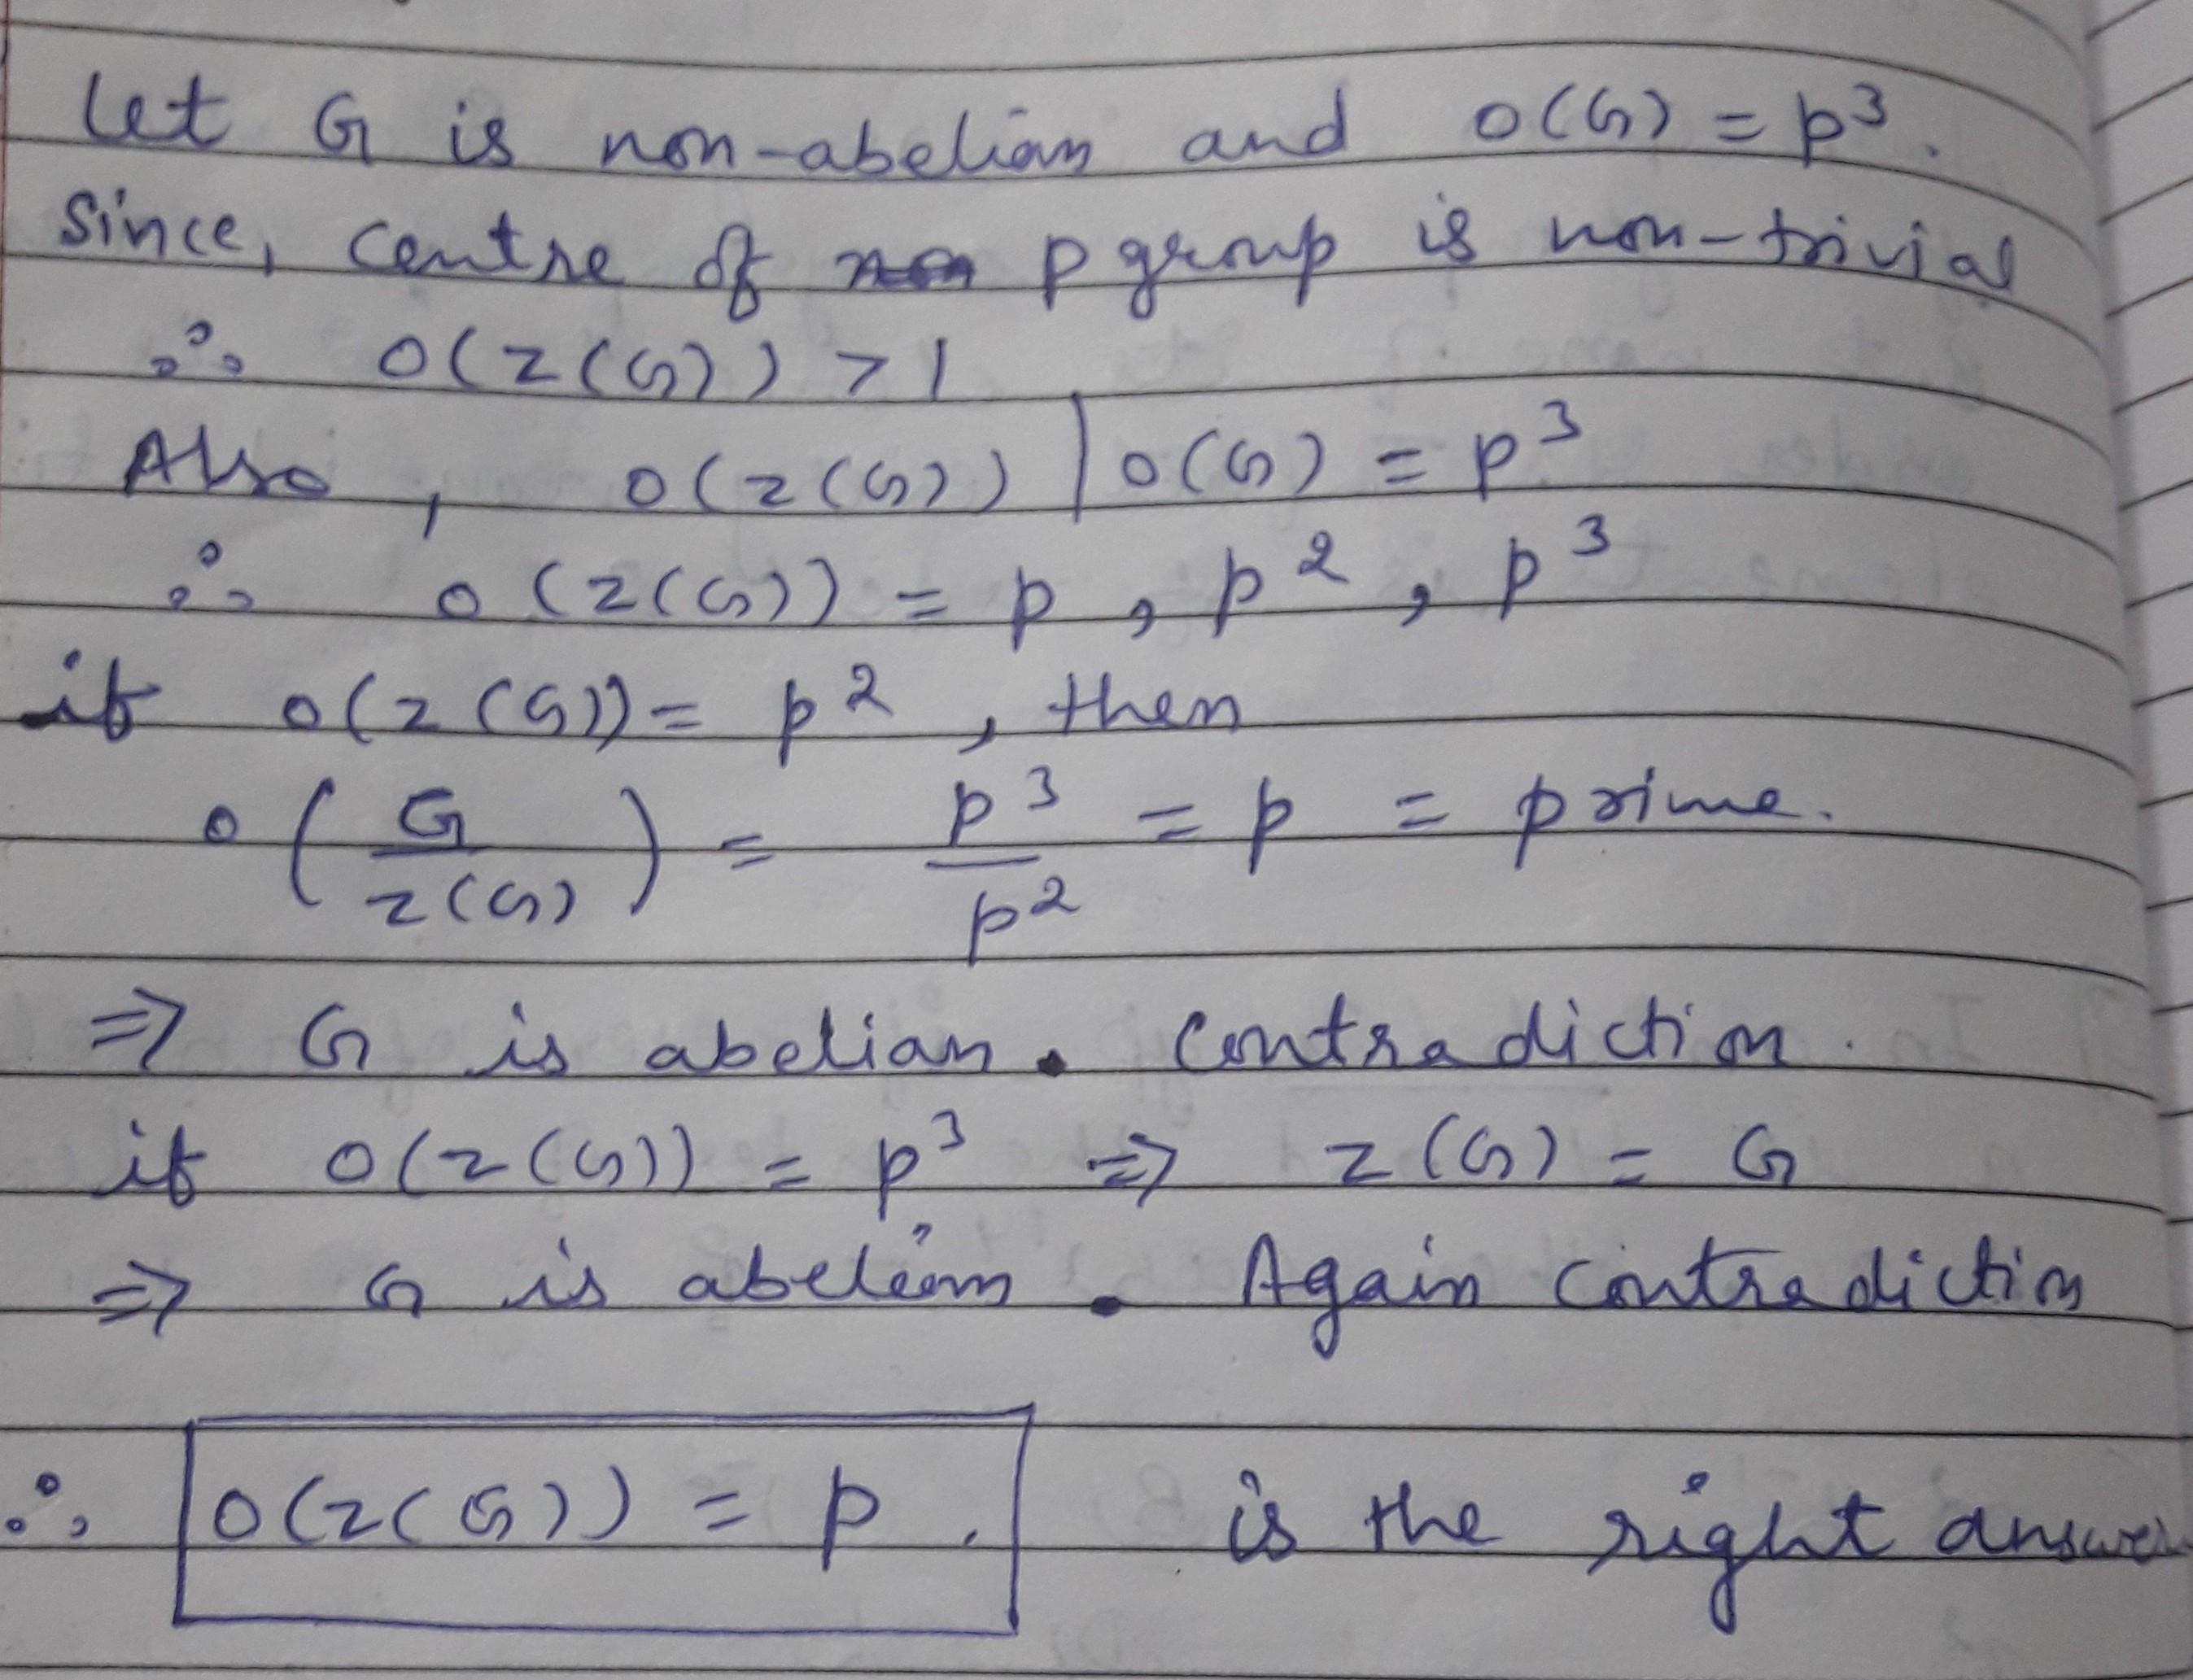 Let G is non-abelian and o(G) = p³.
Since, centre of p group is non-trivial
∴ o(Z(G)) > 1
Also, o(Z(G)) | o(G) = p³
∴ o(Z(G)) = p, p², p³
if o(Z(G)) = p², then
o(G/Z(G)) = p³/p² = p = prime.
⇒ G is abelian. Contradiction.
if o(Z(G)) = p³ ⇒ Z(G) = G
⇒ G is abelian. Again contradiction
∴ o(Z(G)) = p. is the right answer